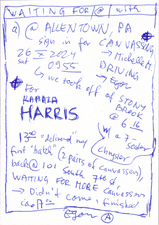 WAITING FOR @ with
a) @ ALLENTOWN, PA
sign in for CANVASSING
26 X 2024 → Michelle M
0955 DRIVING
→ Egon
↳ we took off of STONY
BROOK
@ 6 16
For
KAMALA
HARRIS
w/ a 7-
seater
Chrysler
13:00 "delivered" my
first "batch" (2 pairs of canvassers),
back @ 101 South 7th st,
WAITING FOR MORE canvassers
→ Didn't come, finished
Egon
A